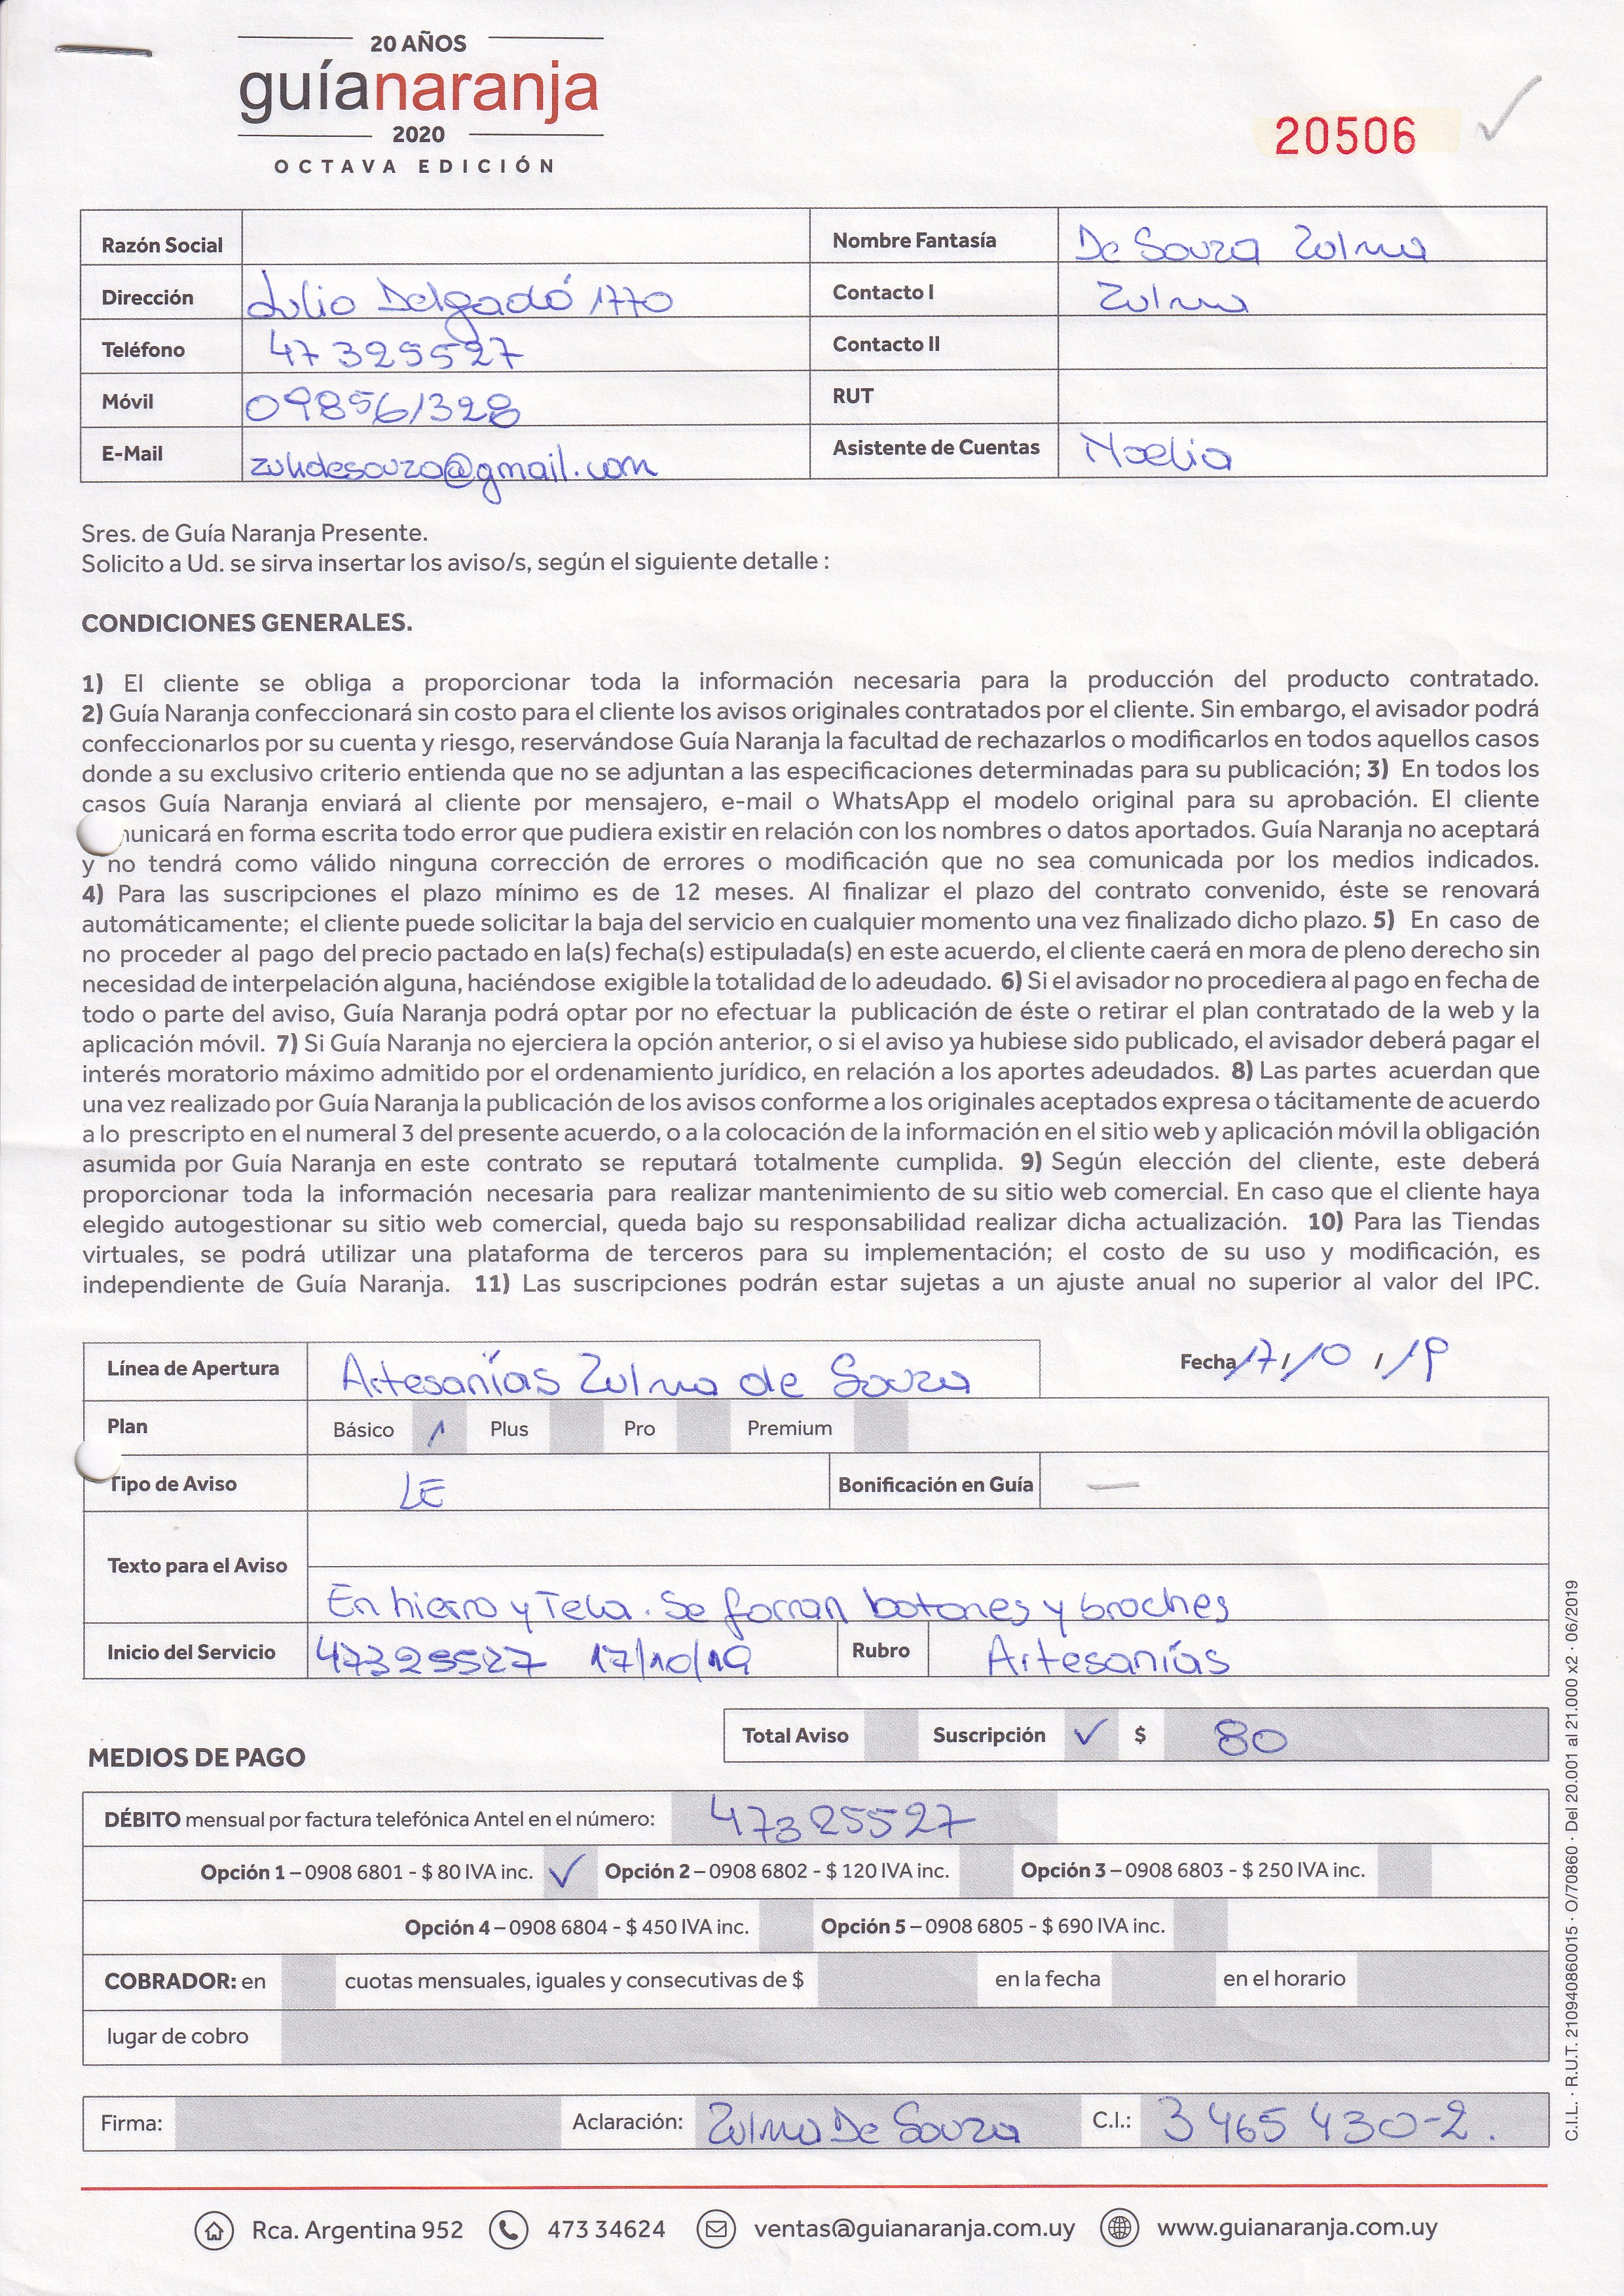 20 AÑOS
guíanaranja
2020
OCTAVA EDICIÓN
20506
Razón Social
Nombre Fantasía De Souza Zulma
Dirección Julio Delgado 1770
Contacto I Zulma
Teléfono 47325527
Contacto II
Móvil 098561328
RUT
E-Mail
Asistente de Cuentas Noelia
Sres. de Guía Naranja Presente.
Solicito a Ud. se sirva insertar los aviso/s, según el siguiente detalle :
CONDICIONES GENERALES.
1) El cliente se obliga a proporcionar toda la información necesaria para la producción del producto contratado.
2) Guía Naranja confeccionará sin costo para el cliente los avisos originales contratados por el cliente. Sin embargo, el avisador podrá
confeccionarlos por su cuenta y riesgo, reservándose Guía Naranja la facultad de rechazarlos o modificarlos en todos aquellos casos
donde a su exclusivo criterio entienda que no se adjuntan a las especificaciones determinadas para su publicación; 3) En todos los
casos Guía Naranja enviará al cliente por mensajero, e-mail o WhatsApp el modelo original para su aprobación. El cliente
municará en forma escrita todo error que pudiera existir en relación con los nombres o datos aportados. Guía Naranja no aceptará
y no tendrá como válido ninguna corrección de errores o modificación que no sea comunicada por los medios indicados.
4) Para las suscripciones el plazo mínimo es de 12 meses. Al finalizar el plazo del contrato convenido, éste se renovará
automáticamente; el cliente puede solicitar la baja del servicio en cualquier momento una vez finalizado dicho plazo. 5) En caso de
no proceder al pago del precio pactado en la(s) fecha(s) estipulada(s) en este acuerdo, el cliente caerá en mora de pleno derecho sin
necesidad de interpelación alguna, haciéndose exigible la totalidad de lo adeudado. 6) Si el avisador no procediera al pago en fecha de
todo o parte del aviso, Guía Naranja podrá optar por no efectuar la publicación de éste o retirar el plan contratado de la web y la
aplicación móvil. 7) Si Guía Naranja no ejerciera la opción anterior, o si el aviso ya hubiese sido publicado, el avisador deberá pagar el
interés moratorio máximo admitido por el ordenamiento jurídico, en relación a los aportes adeudados. 8) Las partes acuerdan que
una vez realizado por Guía Naranja la publicación de los avisos conforme a los originales aceptados expresa o tácitamente de acuerdo
a lo prescripto en el numeral 3 del presente acuerdo, o a la colocación de la información en el sitio web y aplicación móvil la obligación
asumida por Guía Naranja en este contrato se reputará totalmente cumplida. 9) Según elección del cliente, este deberá
proporcionar toda la información necesaria para realizar mantenimiento de su sitio web comercial. En caso que el cliente haya
elegido autogestionar su sitio web comercial, queda bajo su responsabilidad realizar dicha actualización. 10) Para las Tiendas
virtuales, se podrá utilizar una plataforma de terceros para su implementación; el costo de su uso y modificación, es
independiente de Guía Naranja. 11) Las suscripciones podrán estar sujetas a un ajuste anual no superior al valor del IPC.
Línea de Apertura Artesanías Zulma de Souza
Fecha 17/10/19
Plan Básico 1 Plus Pro Premium
Tipo de Aviso LE Bonificación en Guía —
Texto para el Aviso
En hierro y Tela. Se forran botones y broches
Inicio del Servicio 47325527 17/10/19 Rubro Artesanías
Total Aviso Suscripción ✓ $ 80
MEDIOS DE PAGO
DÉBITO mensual por factura telefónica Antel en el número: 47325527
Opción 1 – 0908 6801 - $ 80 IVA inc. ✓ Opción 2 – 0908 6802 - $ 120 IVA inc. Opción 3 – 0908 6803 - $ 250 IVA inc.
Opción 4 – 0908 6804 - $ 450 IVA inc. Opción 5 – 0908 6805 - $ 690 IVA inc.
COBRADOR: en cuotas mensuales, iguales y consecutivas de $ en la fecha en el horario
lugar de cobro
Firma: Aclaración: Zulma De Souza C.I.: 3 465 430-2.
C.I.L. · R.U.T. 210940860015 · O/70860 · Del 20.001 al 21.000 x2 · 06/2019
Rca. Argentina 952 473 34624 ventas@guianaranja.com.uy www.guianaranja.com.uy